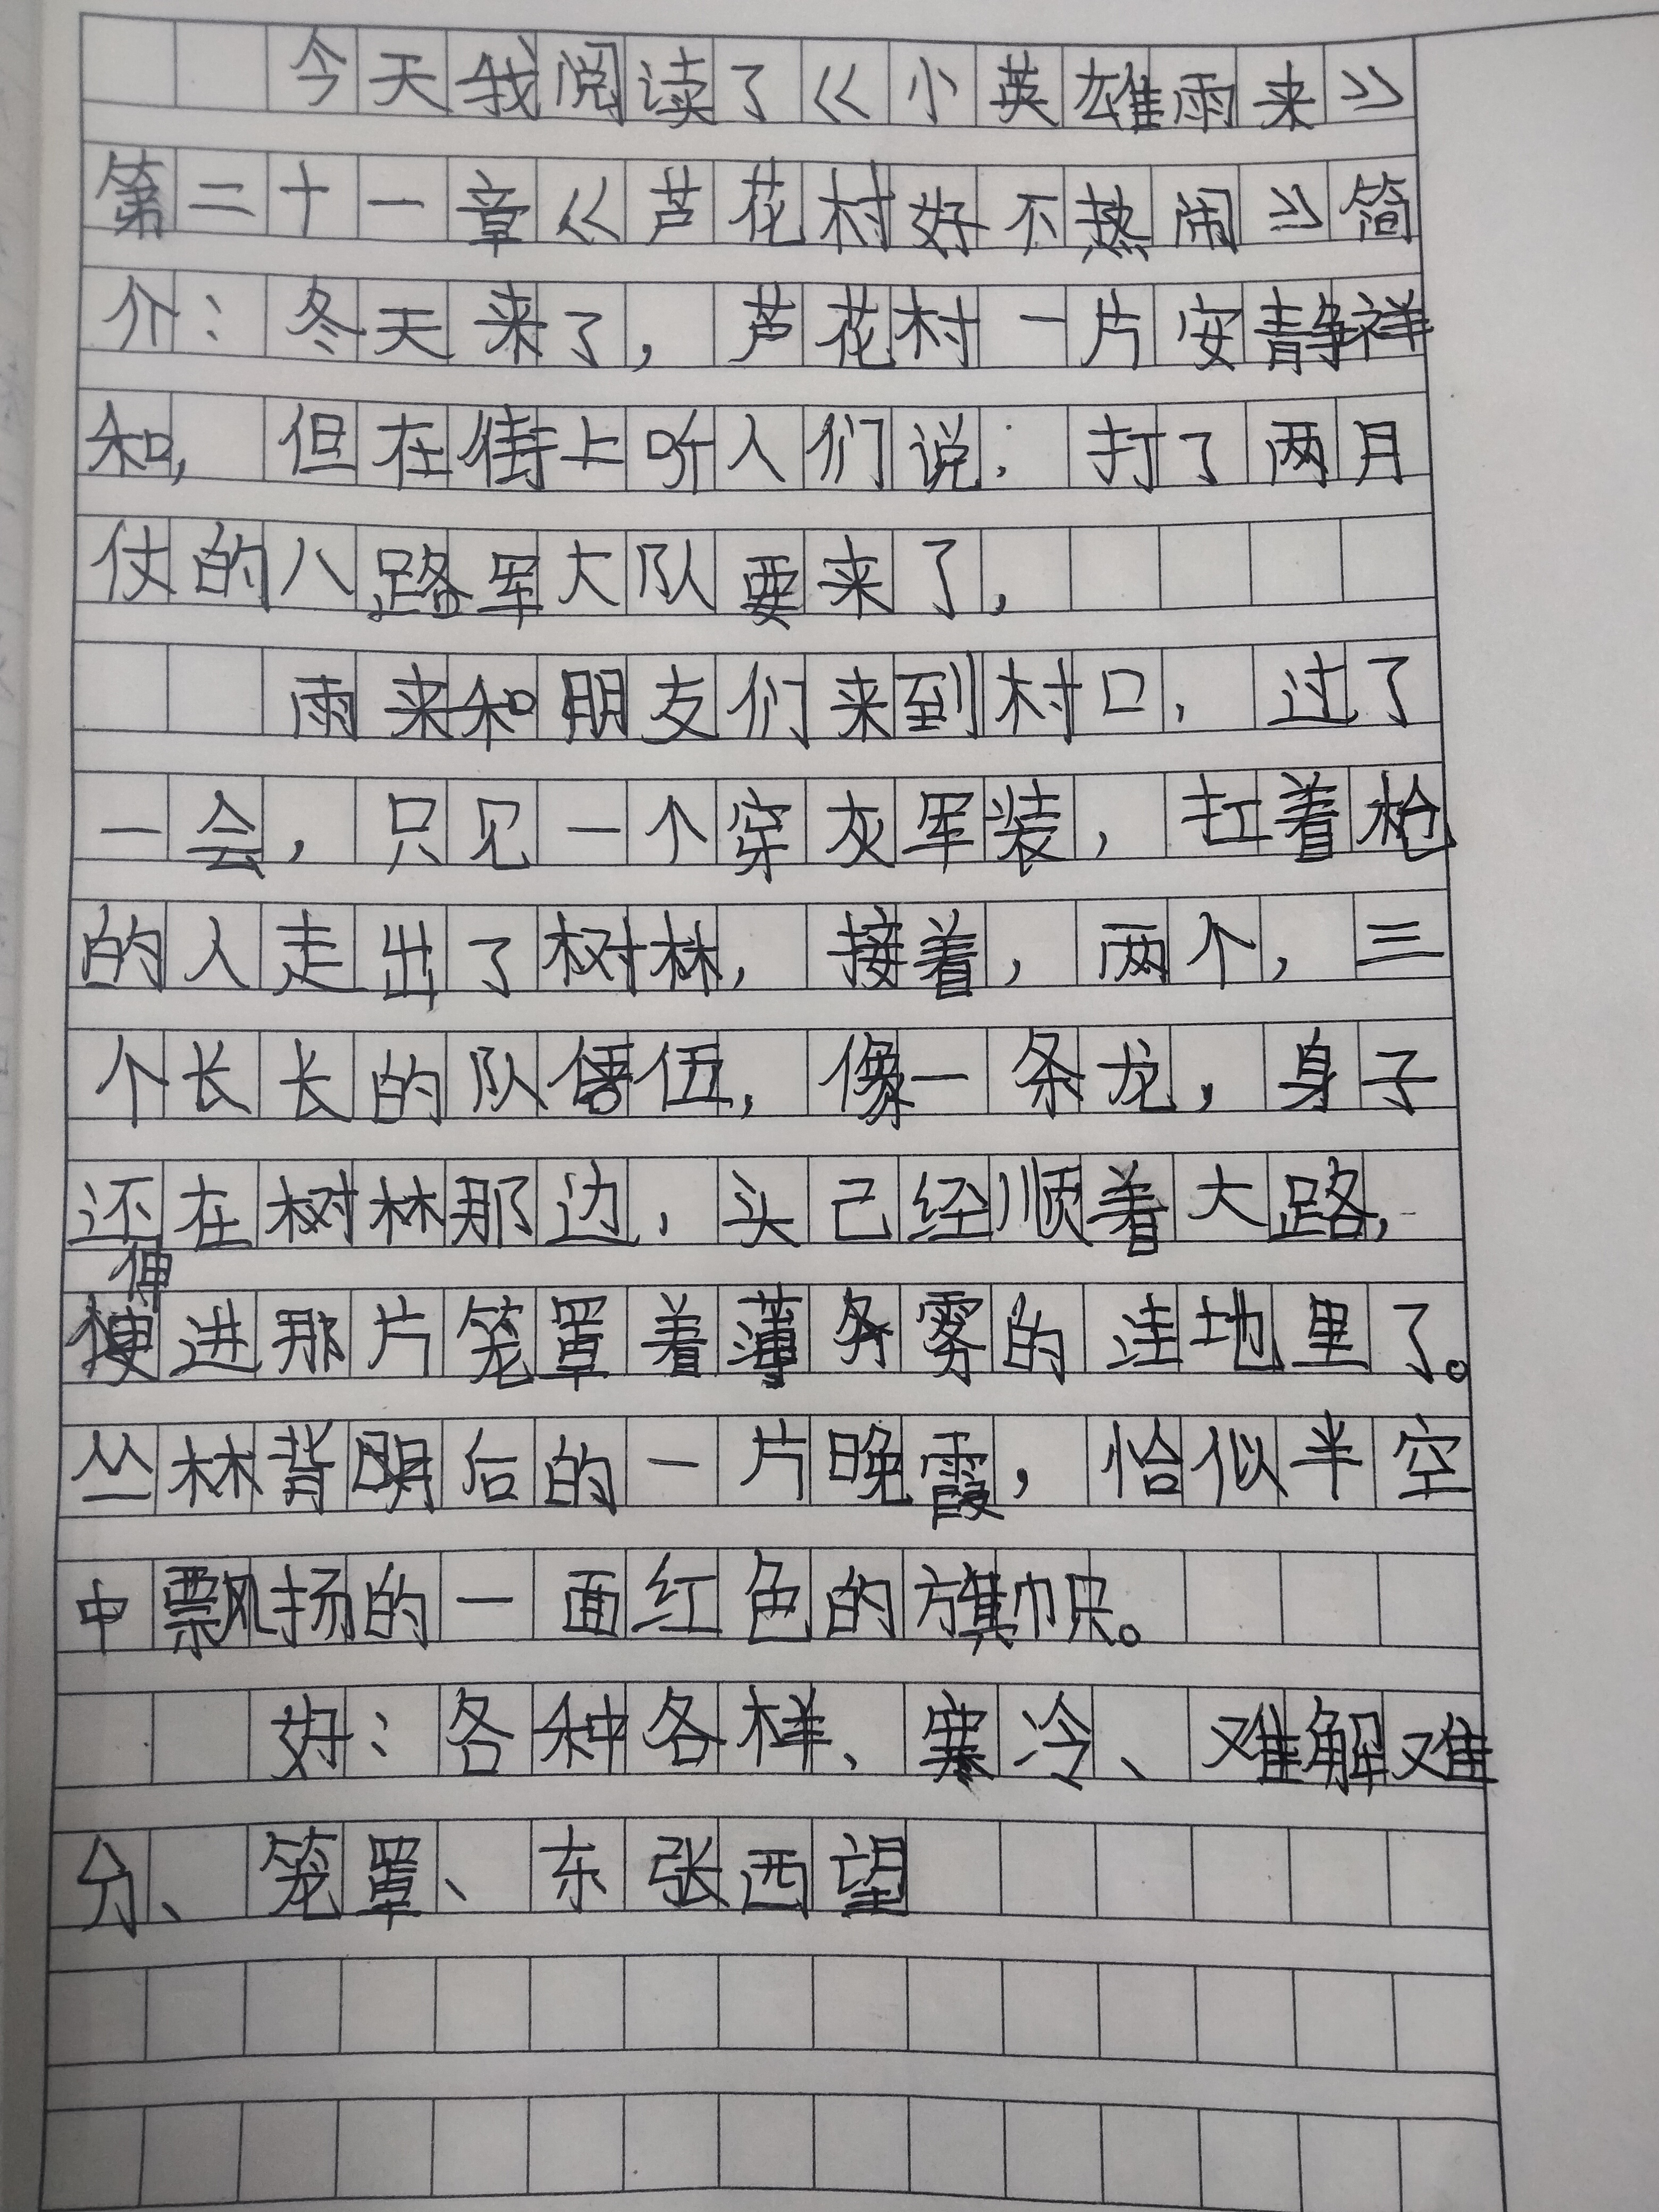 今天我阅读了《小英雄雨来》
第二十一章《芦花村好不热闹》简
介：冬天来了，芦花村一片安静祥
和，但在街上听人们说：打了两月
仗的八路军大队要来了，
雨来和朋友们来到村口，过了
一会，只见一个穿灰军装，扛着枪
的人走出了树林，接着，两个，三
个长长的队伍，像一条龙，身子
还在树林那边，头已经顺着大路，
伸进那片笼罩着薄雾的洼地里了。
丛林背后的一片晚霞，恰似半空
中飘扬的一面红色的旗帜。
好：各种各样、寒冷、难解难
分、笼罩、东张西望